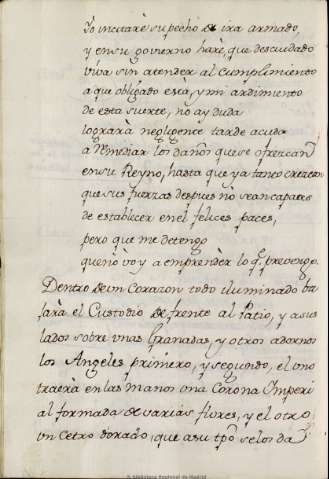 Yo incitarè su pecho de ira armado,
y en su govierno harè, que descuidado
viva sin atender al cumplimiento
a que obligado està, y mi ardimento
de esta suerte, no ay duda
lograrà negligente tarde acuda
a remediar los daños que se ofrezcan
en su Reyno, hasta que ya tanto crezcan
que sus fuerzas despues no sean capazes
de establecer en el felices paces,
pero que me detengo
que nò voy a emprènder lo q.e prevengo.
Dentro de un Corazon todo iluminado ba
jarà el Custodio de frente al Patio, y a sus
lados sobre unas Granadas, y otros adornos
los Angeles primero, y segundo, el uno
traerà en las manos una Corona Imperi
al formada de varias flores, y el otro,
un Cetro dorado, que a su tpõ se los da
© Biblioteca Regional de Madrid